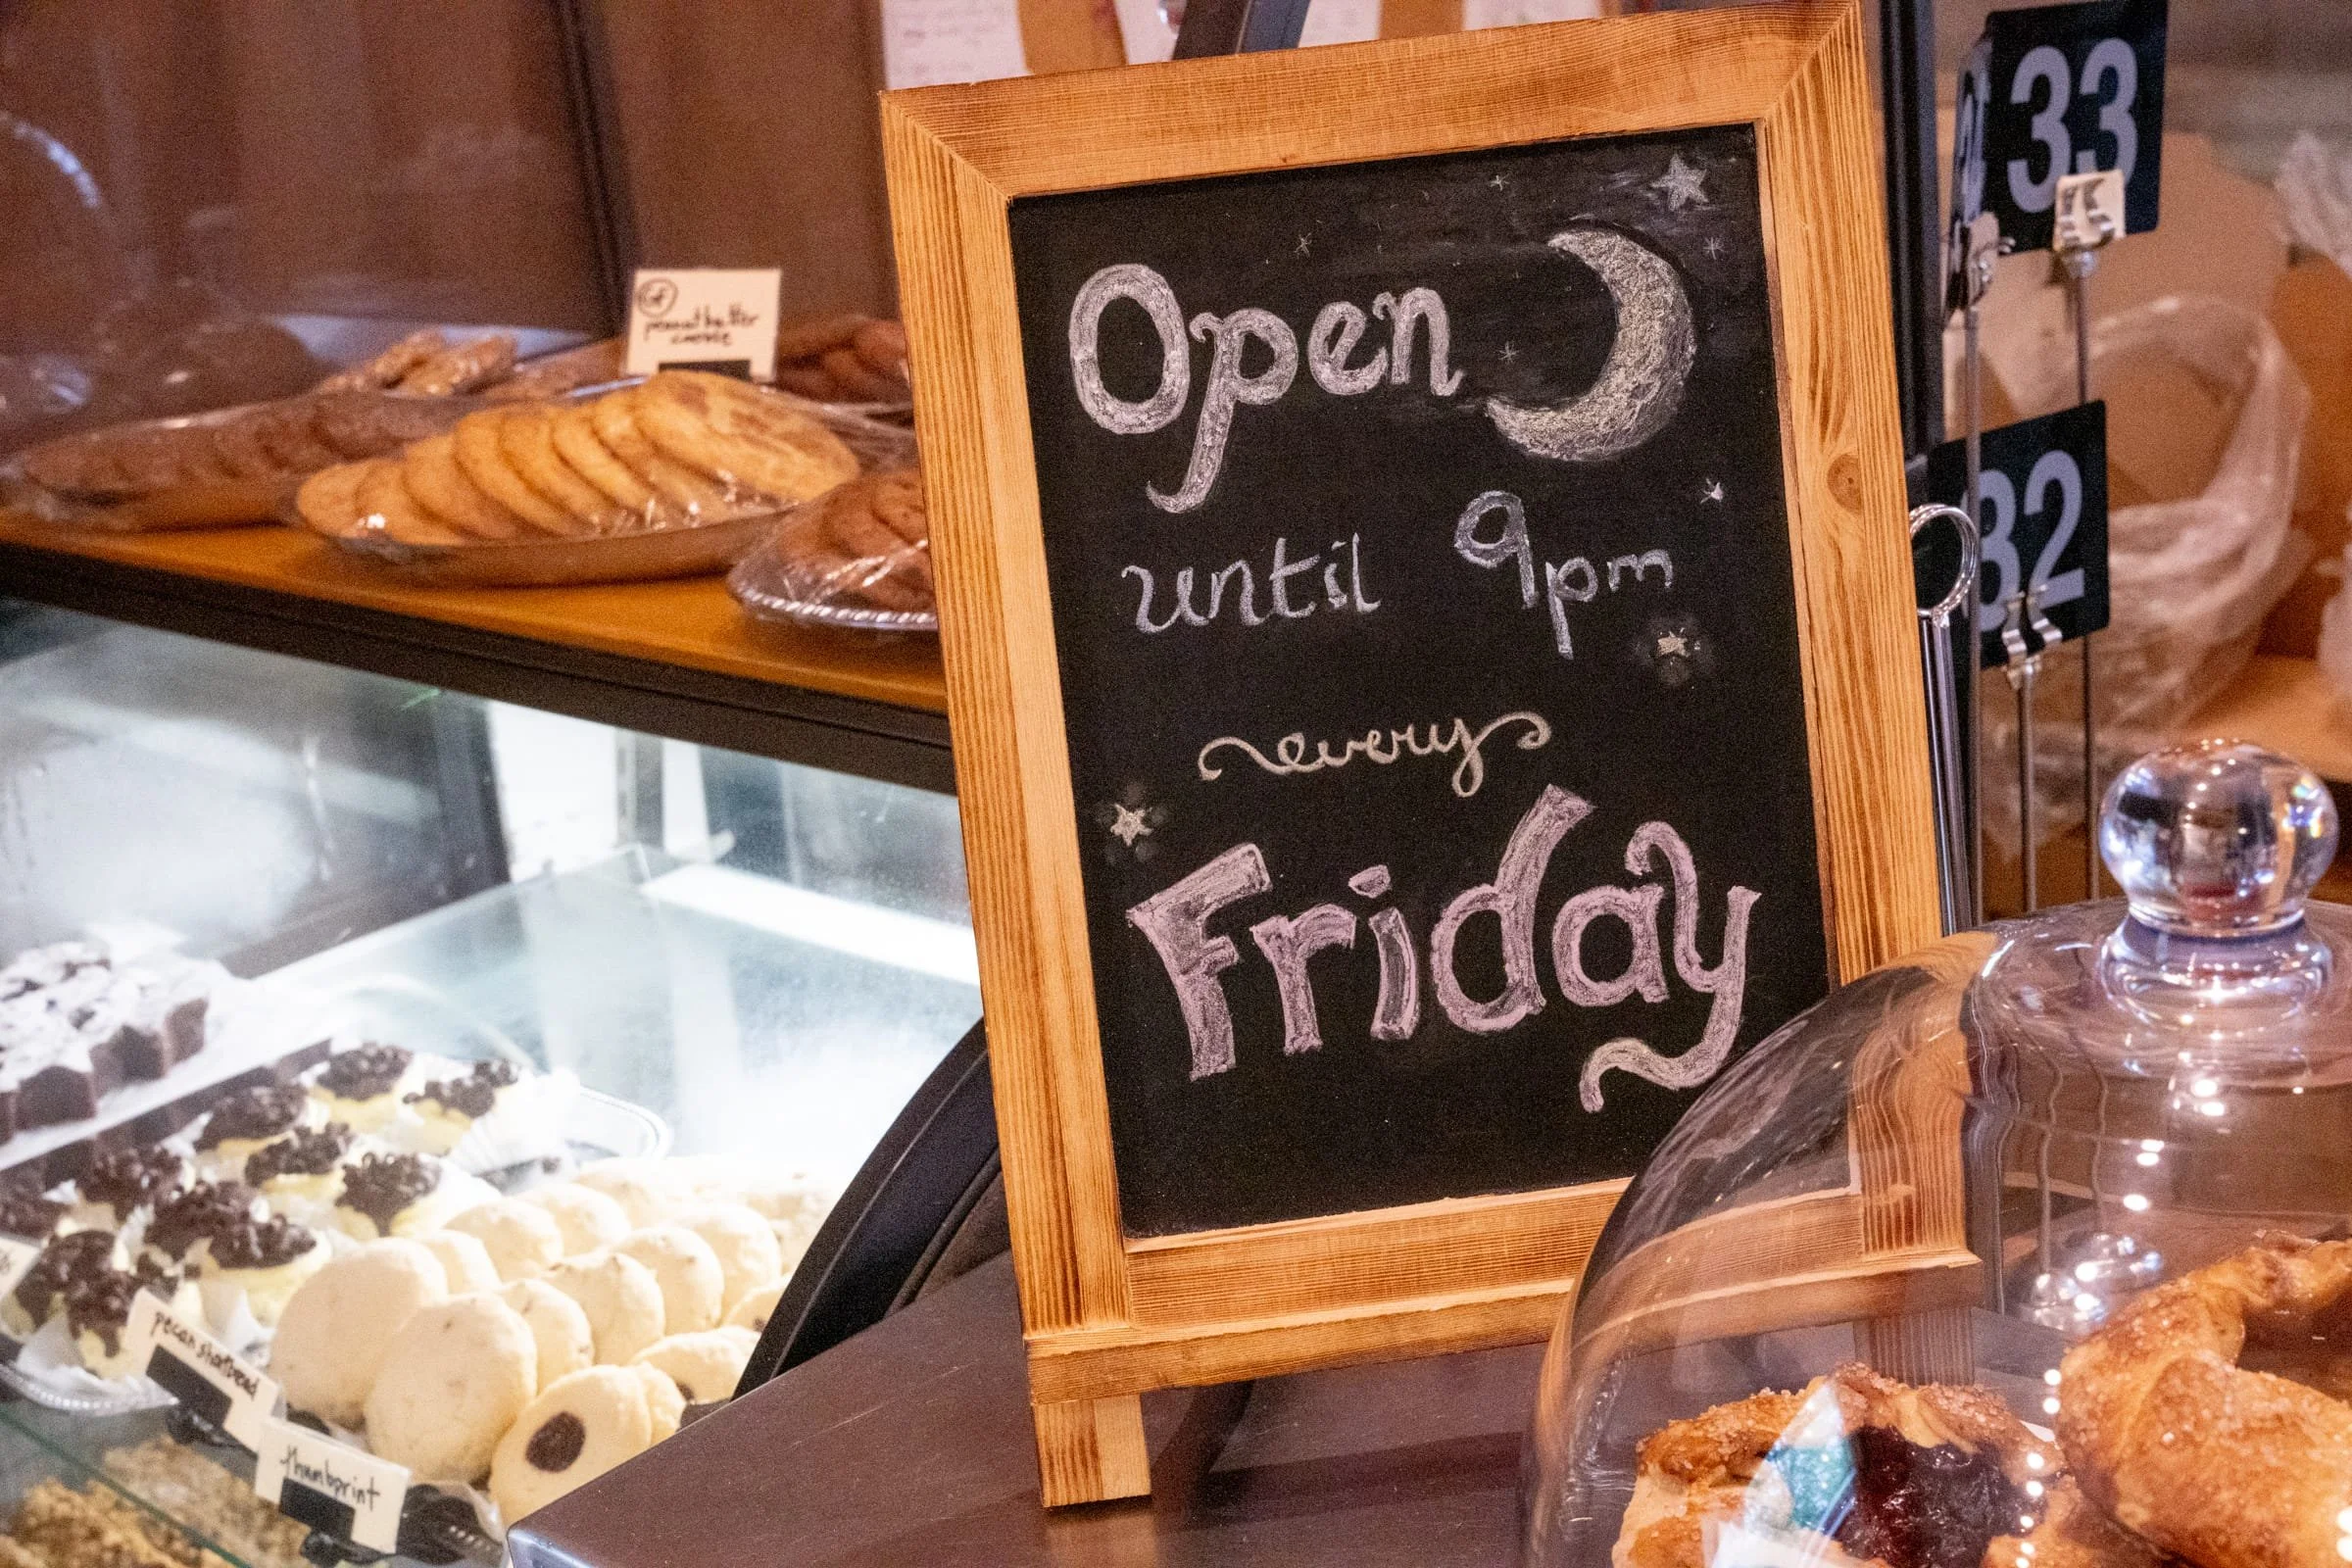 Open
until 9pm
every
Friday
33
32
GF
peanut butter
cookie
pecan shortbread
thumbprint